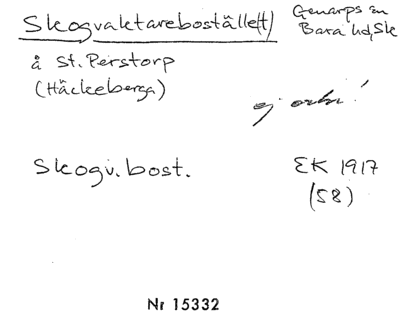 Skogvaktarebostället)
Genarps sn
Bara hd, Sk
å St. Perstorp
(Häckeberga)
ej ortn!
Skogv. bost.
EK 1917
(58)
Nr 15332